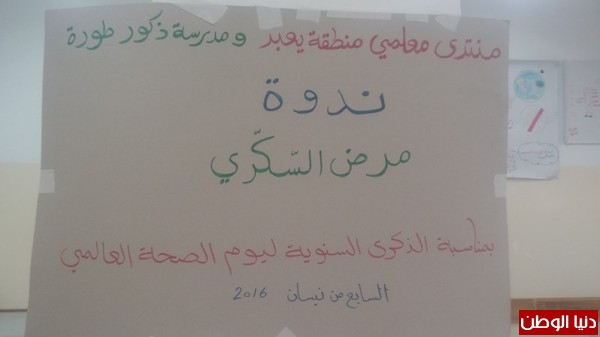 منتدى معلمي منطقة يعبد ومدرسة ذكور طورة
ندوة
مرض السّكّري
بمناسبة الذكرى السنوية ليوم الصحة العالمي
السابع من نيسان 2016
دنيا الوطن